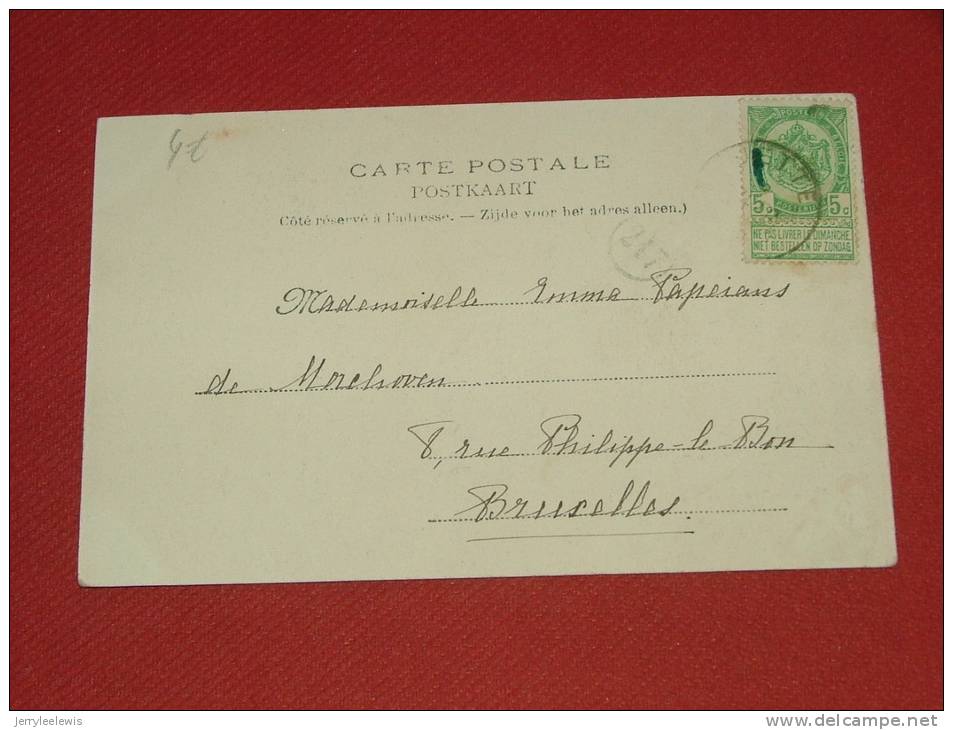 CARTE POSTALE
POSTKAART
Côté réservé à l'adresse. — Zijde voor het adres alleen.)
5c 5c
NE PAS LIVRER LE DIMANCHE
NIET BESTELLEN OP ZONDAG
Mademoiselle Emma Papeians
de Morchoven
8, rue Philippe-le-Bon
Bruxelles.
jerryleelewis
www.delcampe.net